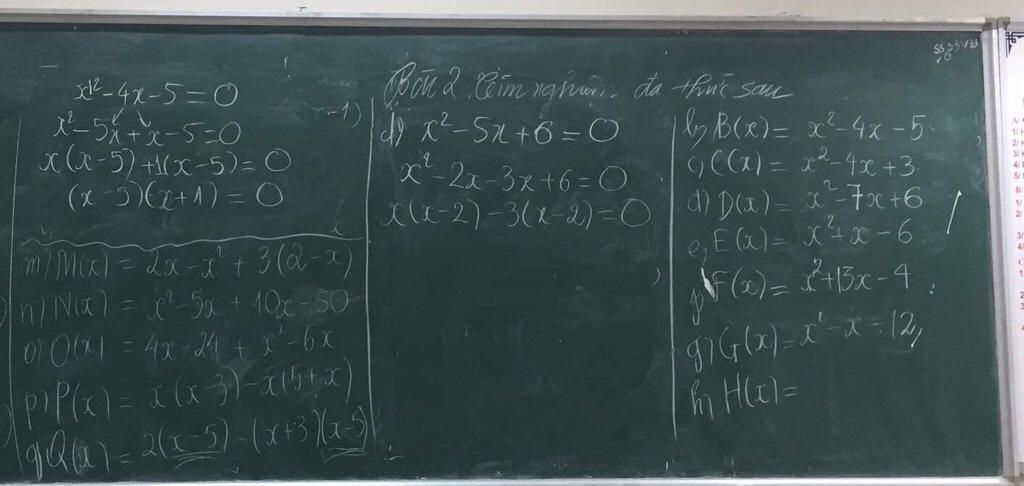 x² - 4x - 5 = 0
x² - 5x + x - 5 = 0
x(x-5) + 1(x-5) = 0
(x-5)(x+1) = 0
m) M(x) = 2x - x² + 3(2-x)
n) N(x) = x² - 5x + 10x - 50
o) O(x) = 4x - 24 + x² - 6x
p) P(x) = x(x-3) - x(5+x)
q) Q(x) = 2(x-5) - (x+3)(x-5)
Bài 2. Tìm nghiệm đa thức sau
d) x² - 5x + 6 = 0
x² - 2x - 3x + 6 = 0
x(x-2) - 3(x-2) = 0
b) B(x) = x² - 4x - 5
c) C(x) = x² - 4x + 3
d) D(x) = x² - 7x + 6
e) E(x) = x² + x - 6
F(x) = x² + 13x - 4
g) G(x) = x² - x - 12
h) H(x) =